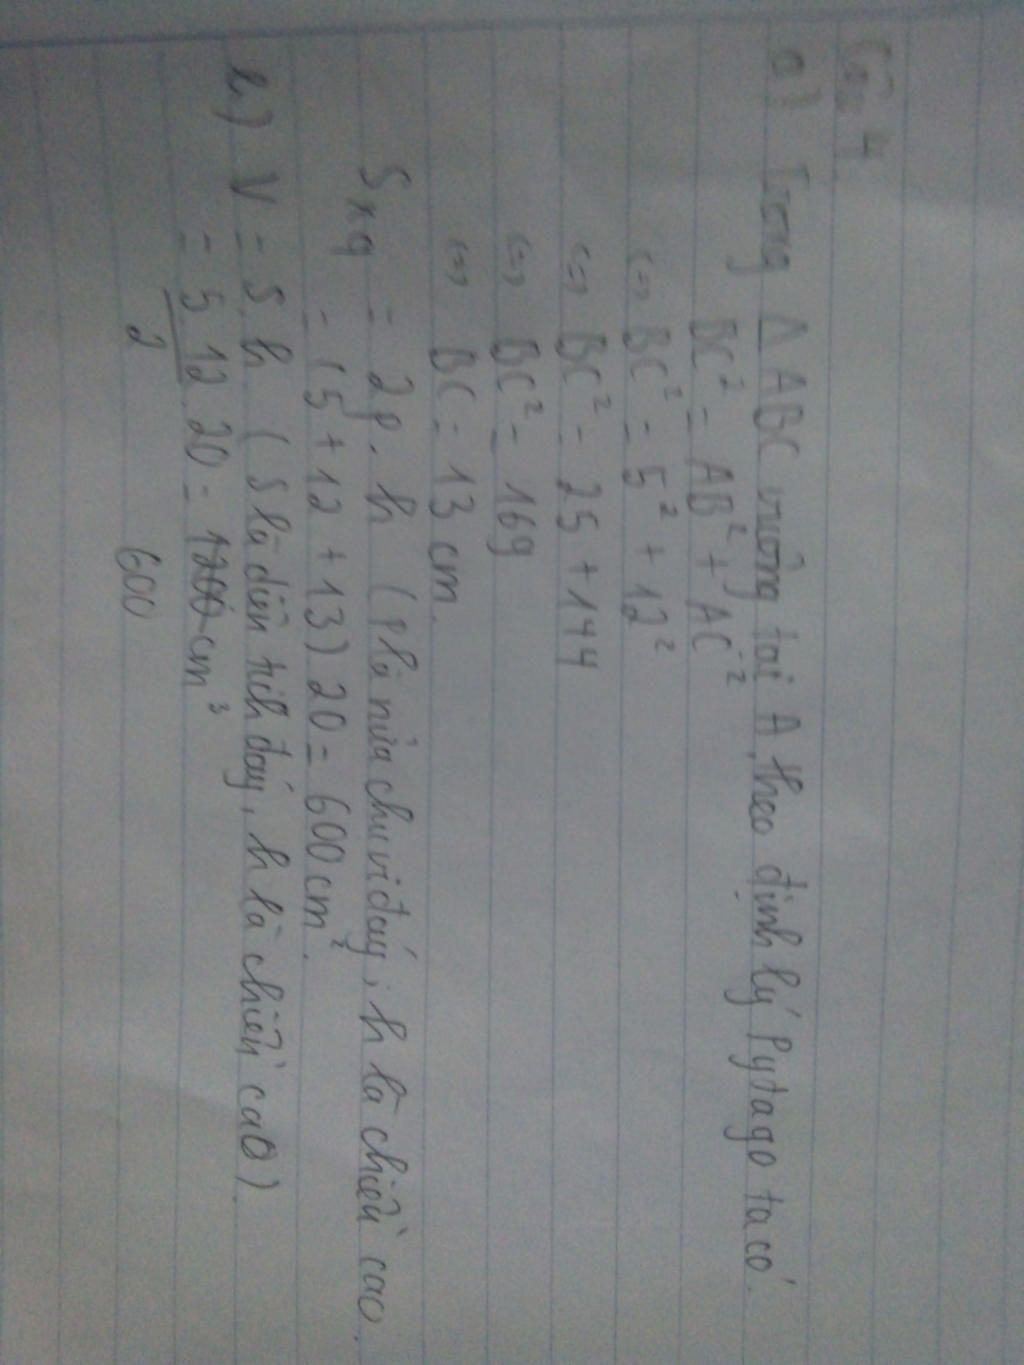 Câu 4
a) Trong Δ ABC vuông tại A, theo định lý Pytago ta có
BC² = AB² + AC²
<=> BC² = 5² + 12²
<=> BC² = 25 + 144
<=> BC² = 169
<=> BC = 13 cm.
Sxq = 2p. h (p là nửa chu vi đáy, h là chiều cao.
= (5 + 12 + 13) 20 = 600 cm².
b) V = S. h ( S là diện tích đáy, h là chiều cao)
= 5.12/2 . 20 = 1200 cm³
600